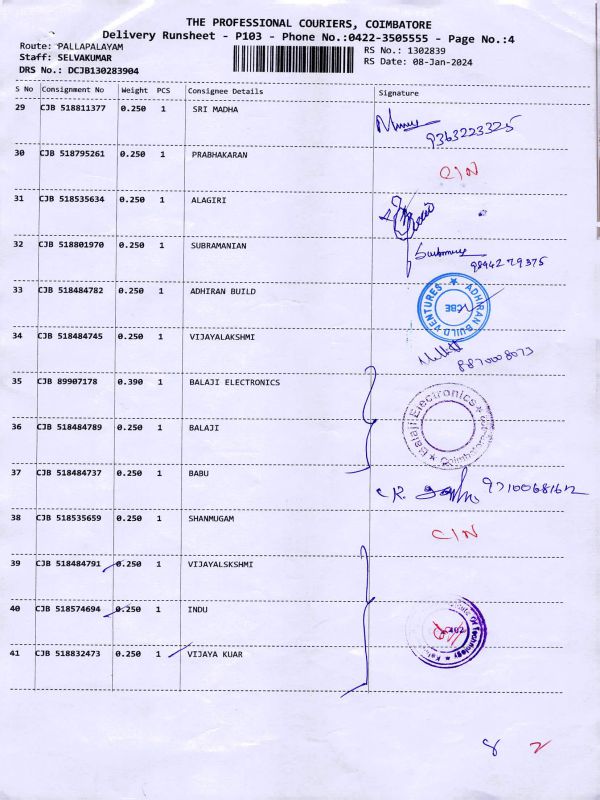 THE PROFESSIONAL COURIERS, COIMBATORE
Delivery Runsheet - P103 - Phone No.:0422-3505555 - Page No.:4
Route: PALLAPALAYAM
RS No.: 1302839
Staff: SELVAKUMAR
RS Date: 08-Jan-2024
DRS No.: DCJB130283904
S No Consignment No Weight PCS Consignee Details Signature
29 CJB 518811377 0.250 1 SRI MADHA
9363223325
30 CJB 518795261 0.250 1 PRABHAKARAN
CIN
31 CJB 518535634 0.250 1 ALAGIRI
32 CJB 518801970 0.250 1 SUBRAMANIAN
9894279375
33 CJB 518484782 0.250 1 ADHIRAN BUILD
ADHIRAN BUILD VENTURES CBE
34 CJB 518484745 0.250 1 VIJAYALAKSHMI
8870008073
35 CJB 89907178 0.390 1 BALAJI ELECTRONICS
Balaji Electronics
36 CJB 518484789 0.250 1 BALAJI
37 CJB 518484737 0.250 1 BABU
38 CJB 518535659 0.250 1 SHANMUGAM
CIN
39 CJB 518484791 0.250 1 VIJAYALSKSHMI
40 CJB 518574694 0.250 1 INDU
of Technology
41 CJB 518832473 0.250 1 VIJAYA KUAR
8 2